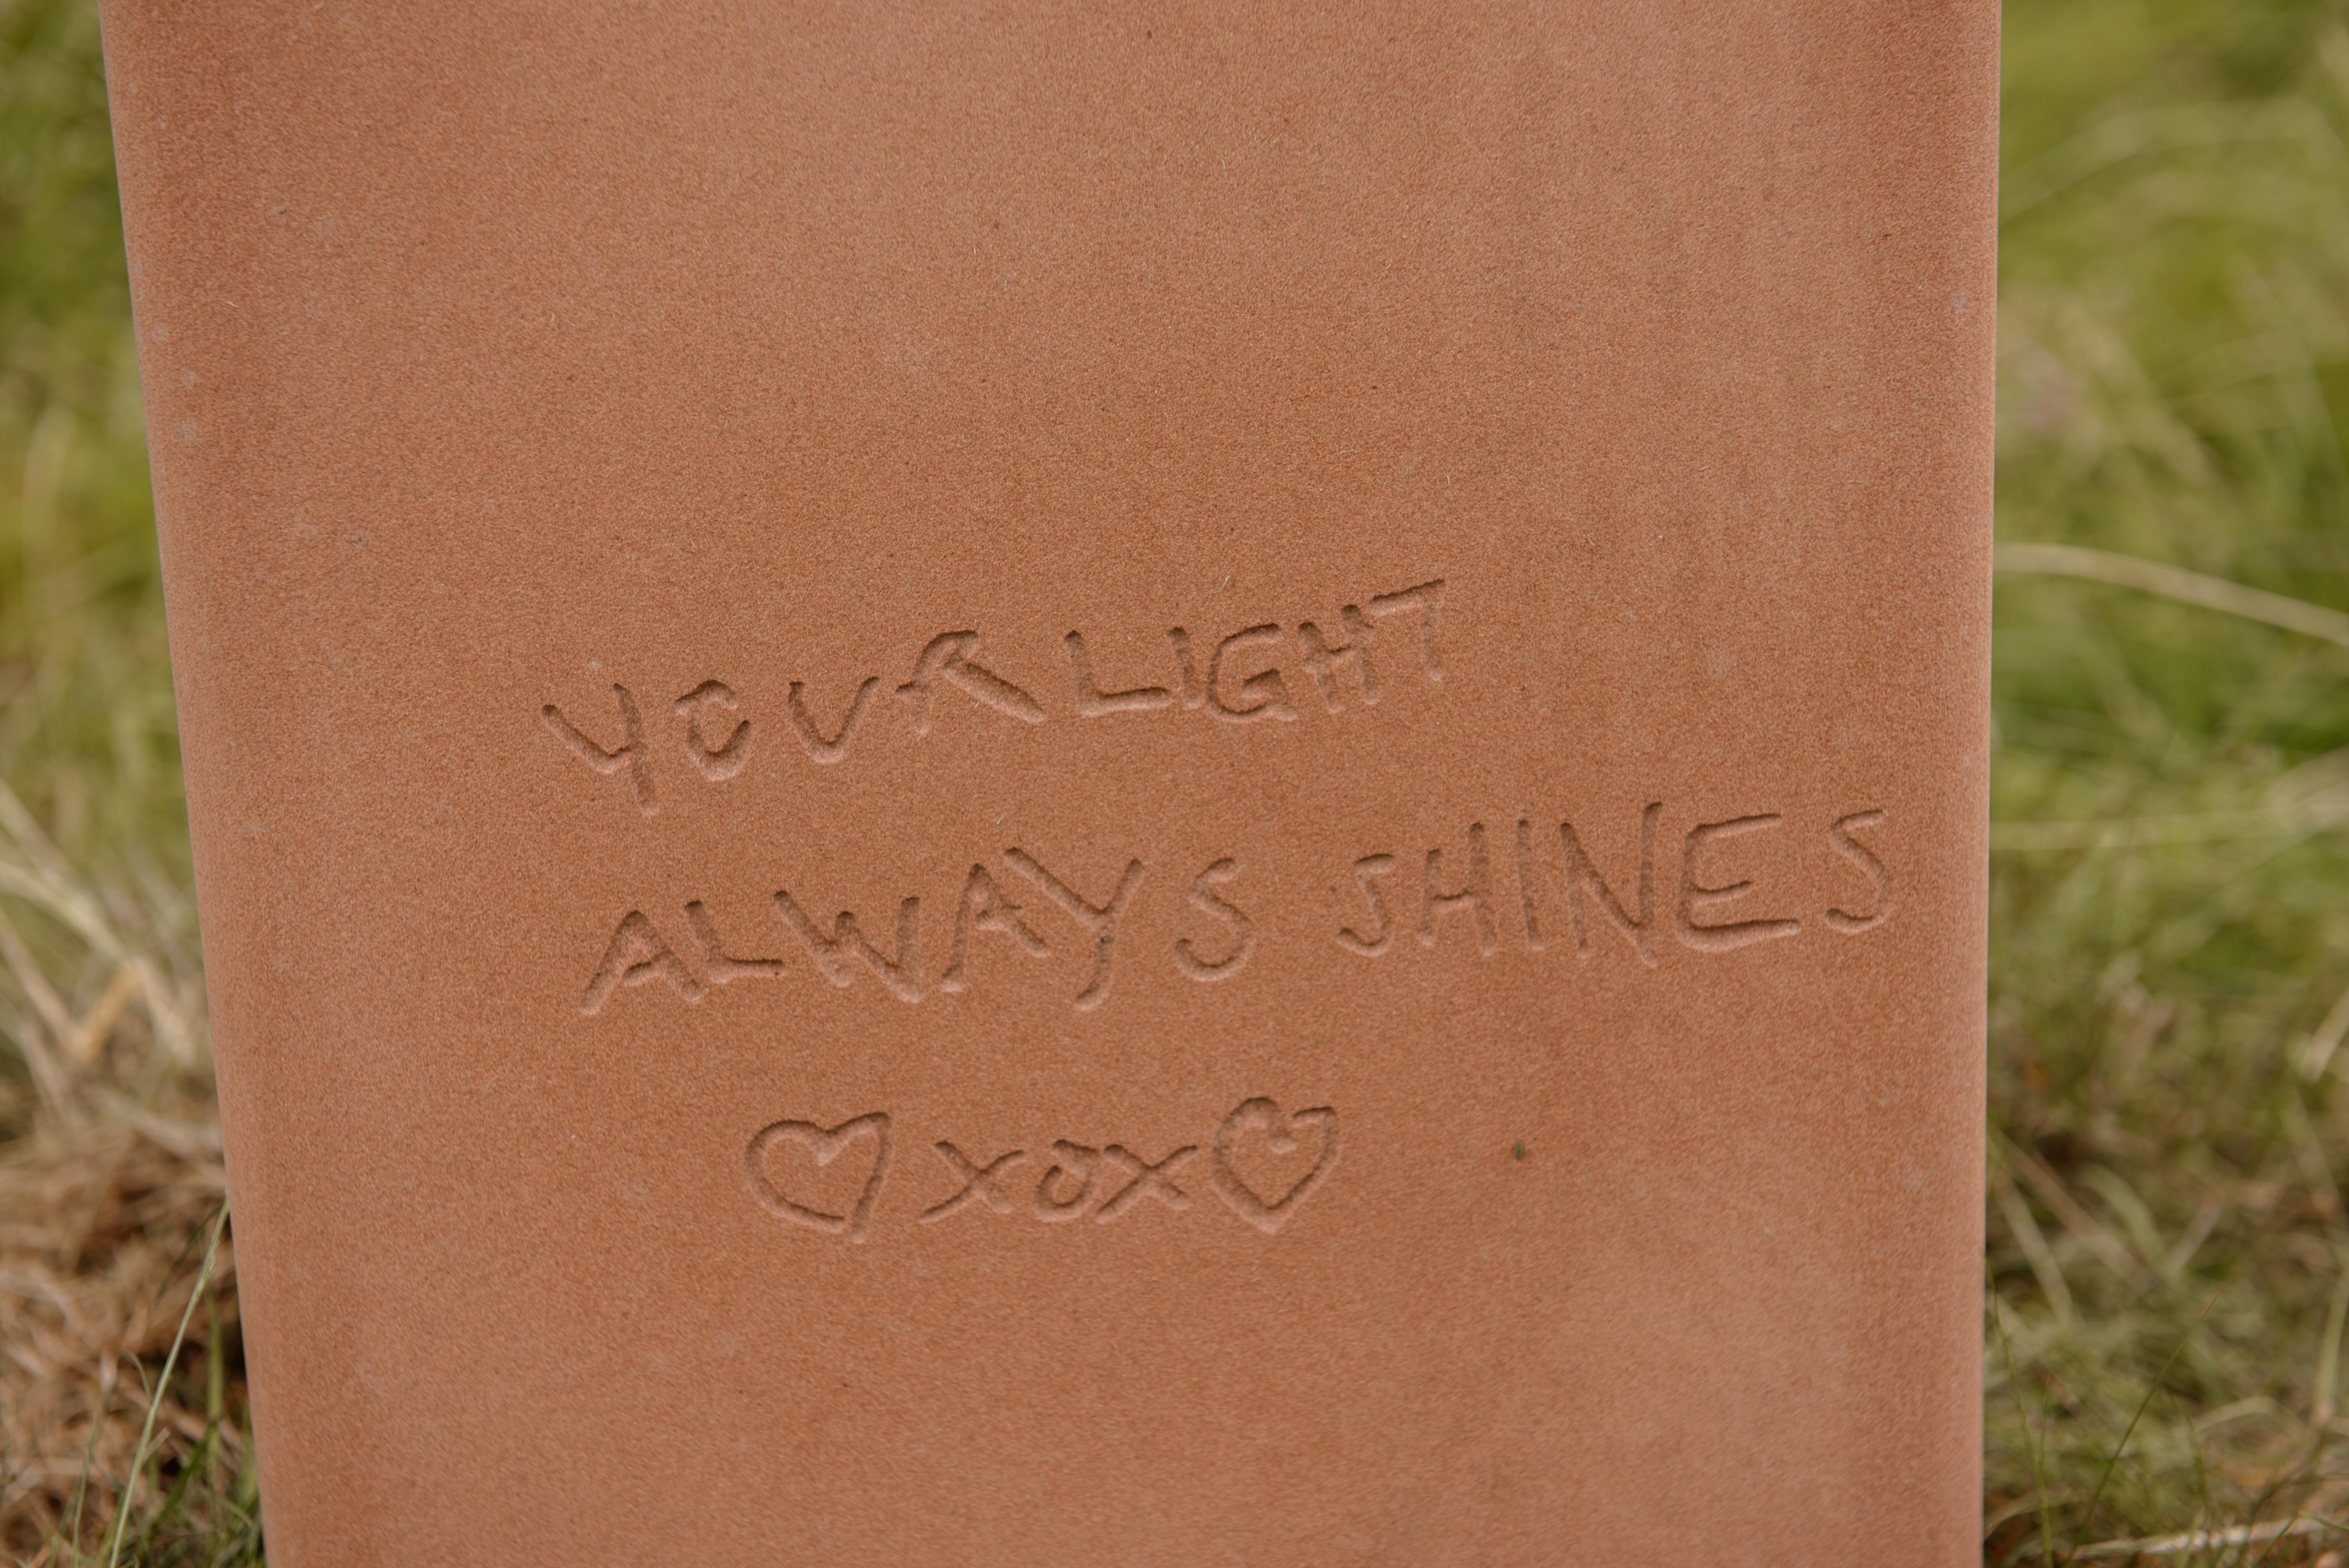 YOUR LIGHT
ALWAYS SHINES
♡xox♡